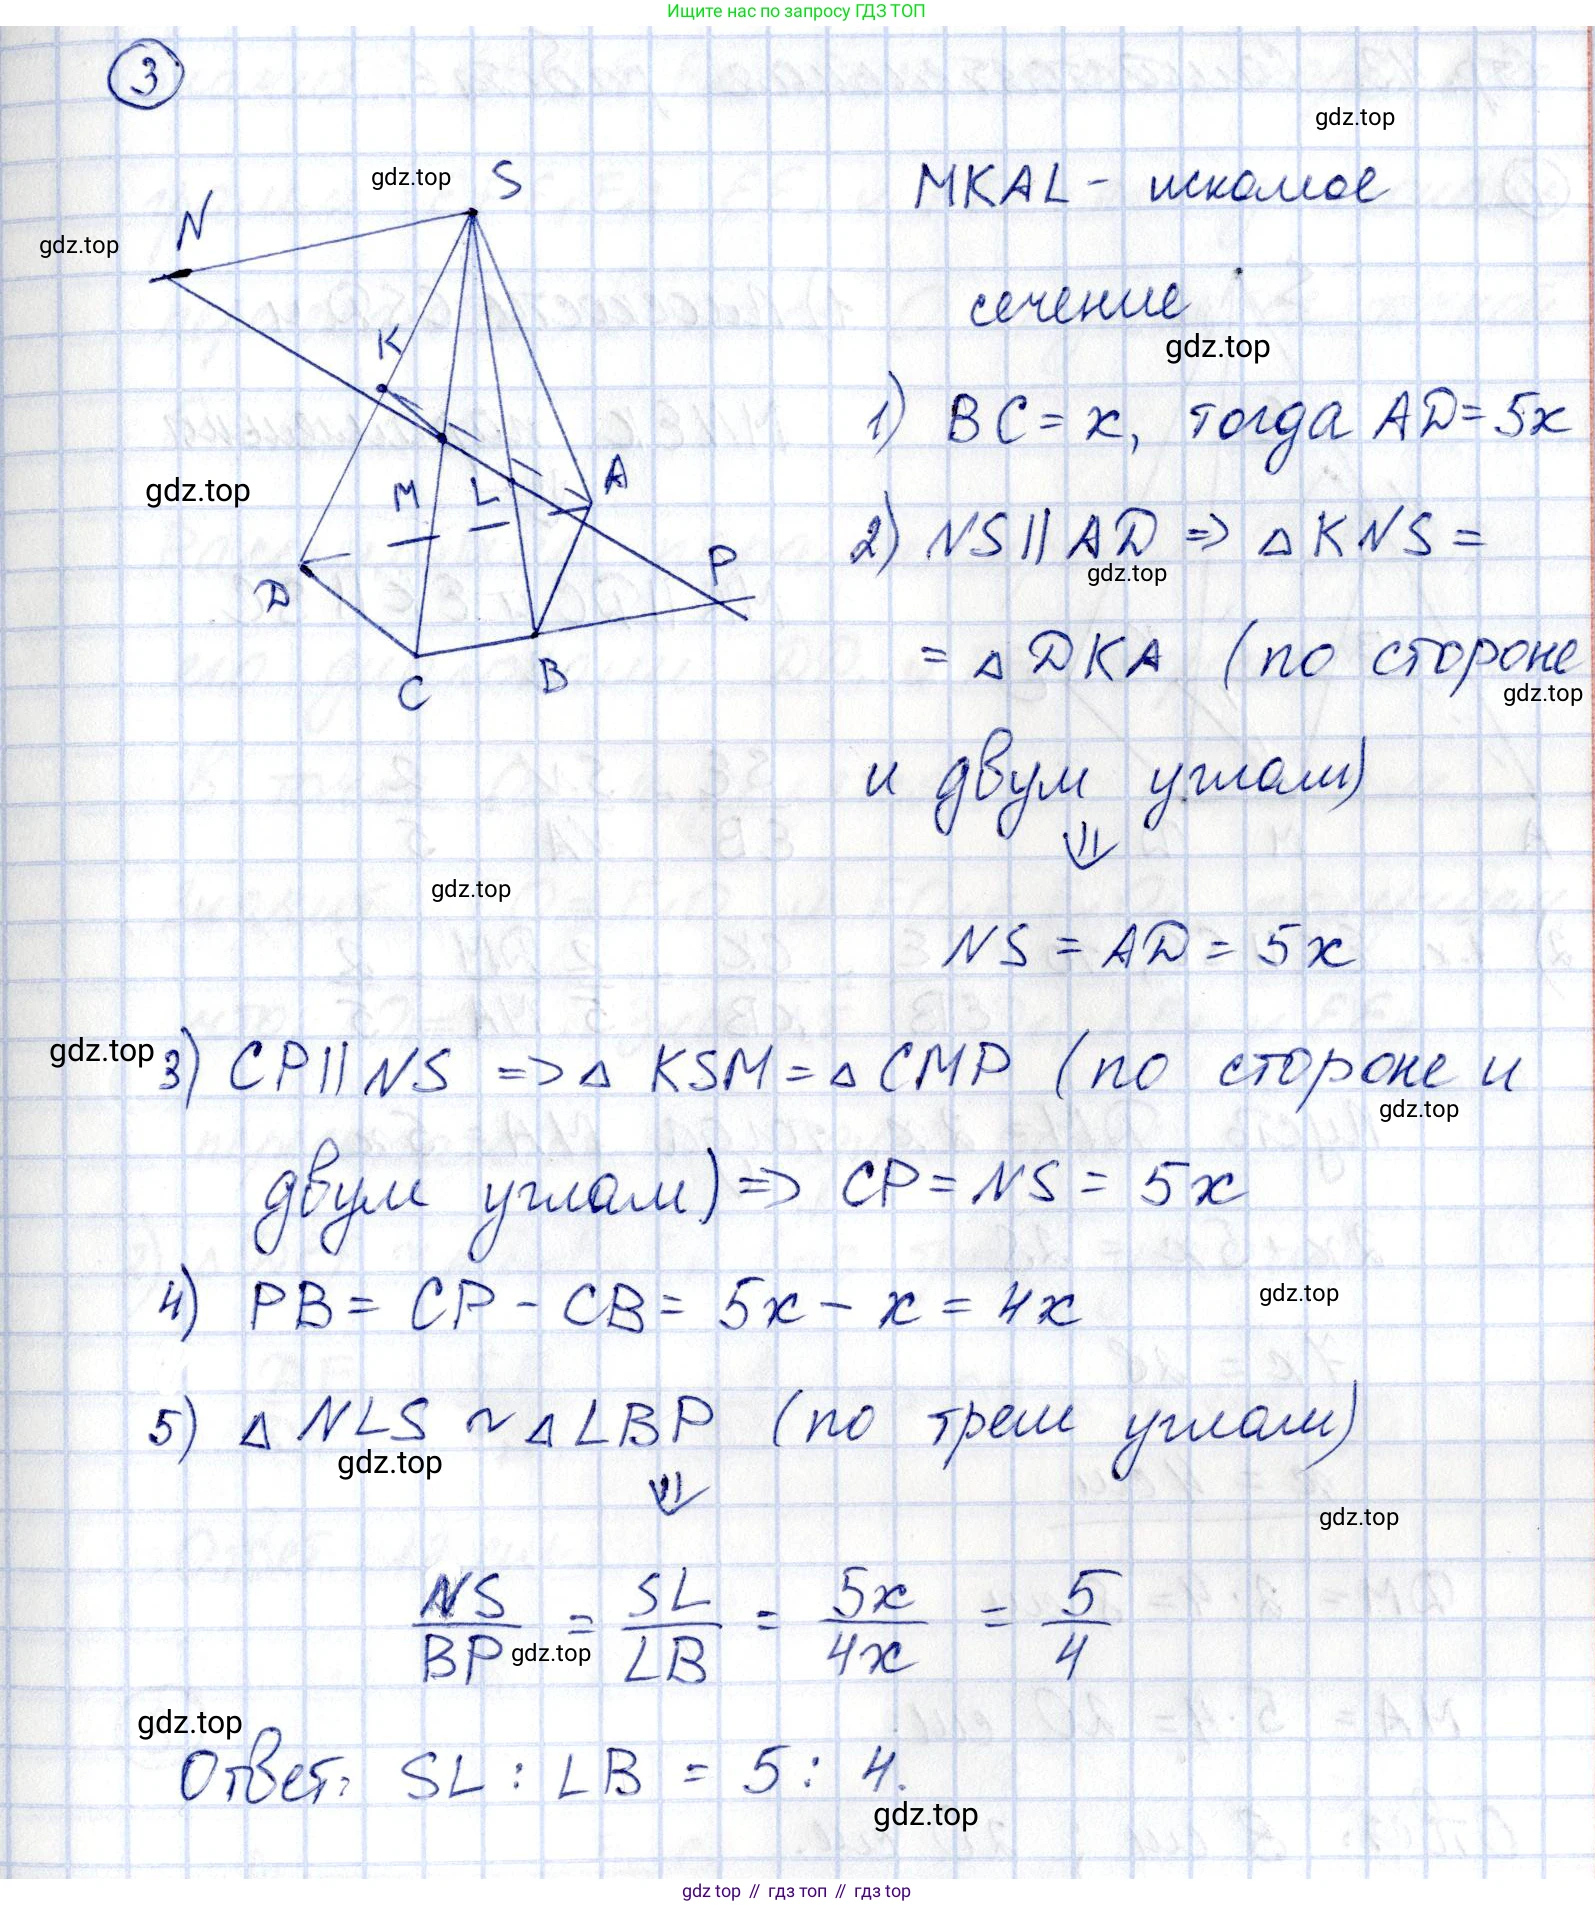 Ищите нас по запросу ГДЗ ТОП
3
gdz.top
gdz.top
S
MKAL - искомое
N
gdz.top
сечение
gdz.top
K
1) BC = x, тогда AD = 5x
gdz.top
M
L
A
2) NS || AD => △ KNS =
gdz.top
P
D
= △ DKA (по стороне
gdz.top
C
B
и двум углам)
⇓
gdz.top
NS = AD = 5x
gdz.top
3) CP || NS => △ KSM = △ CMP (по стороне и
gdz.top
двум углам) => CP = NS = 5x
4) PB = CP - CB = 5x - x = 4x
gdz.top
5) △ NLS ~ △ LBP (по трем углам)
gdz.top
⇓
gdz.top
NS/BP = SL/LB = 5x/4x = 5/4
gdz.top
gdz.top
Ответ: SL : LB = 5 : 4.
gdz.top
gdz top // гдз топ // gdz.top